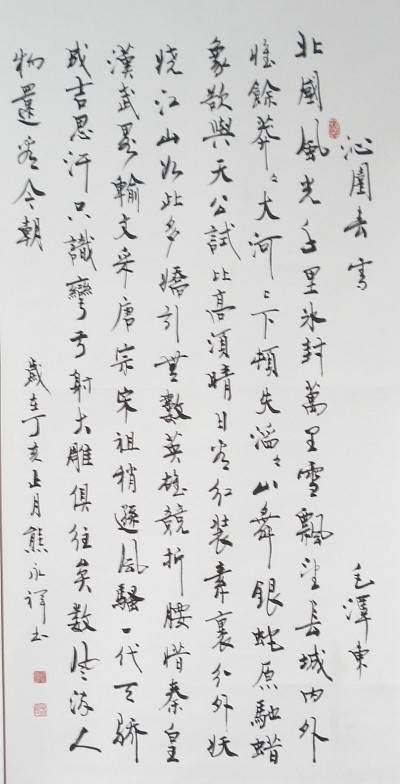 沁園春雪 毛澤東
北國風光千里冰封萬里雪飄望長城内外
惟餘莽々大河上下頓失滔々山舞銀蛇原馳蜡
象欲與天公試比高須晴日看红装素裹分外妖
娆江山如此多嬌引無數英雄競折腰惜秦皇
漢武畧輸文采唐宗宋祖稍遜風騷一代天骄
成吉思汗只識彎弓射大雕俱往矣數風流人
物還看今朝
歲在丁亥正月熊永祥书